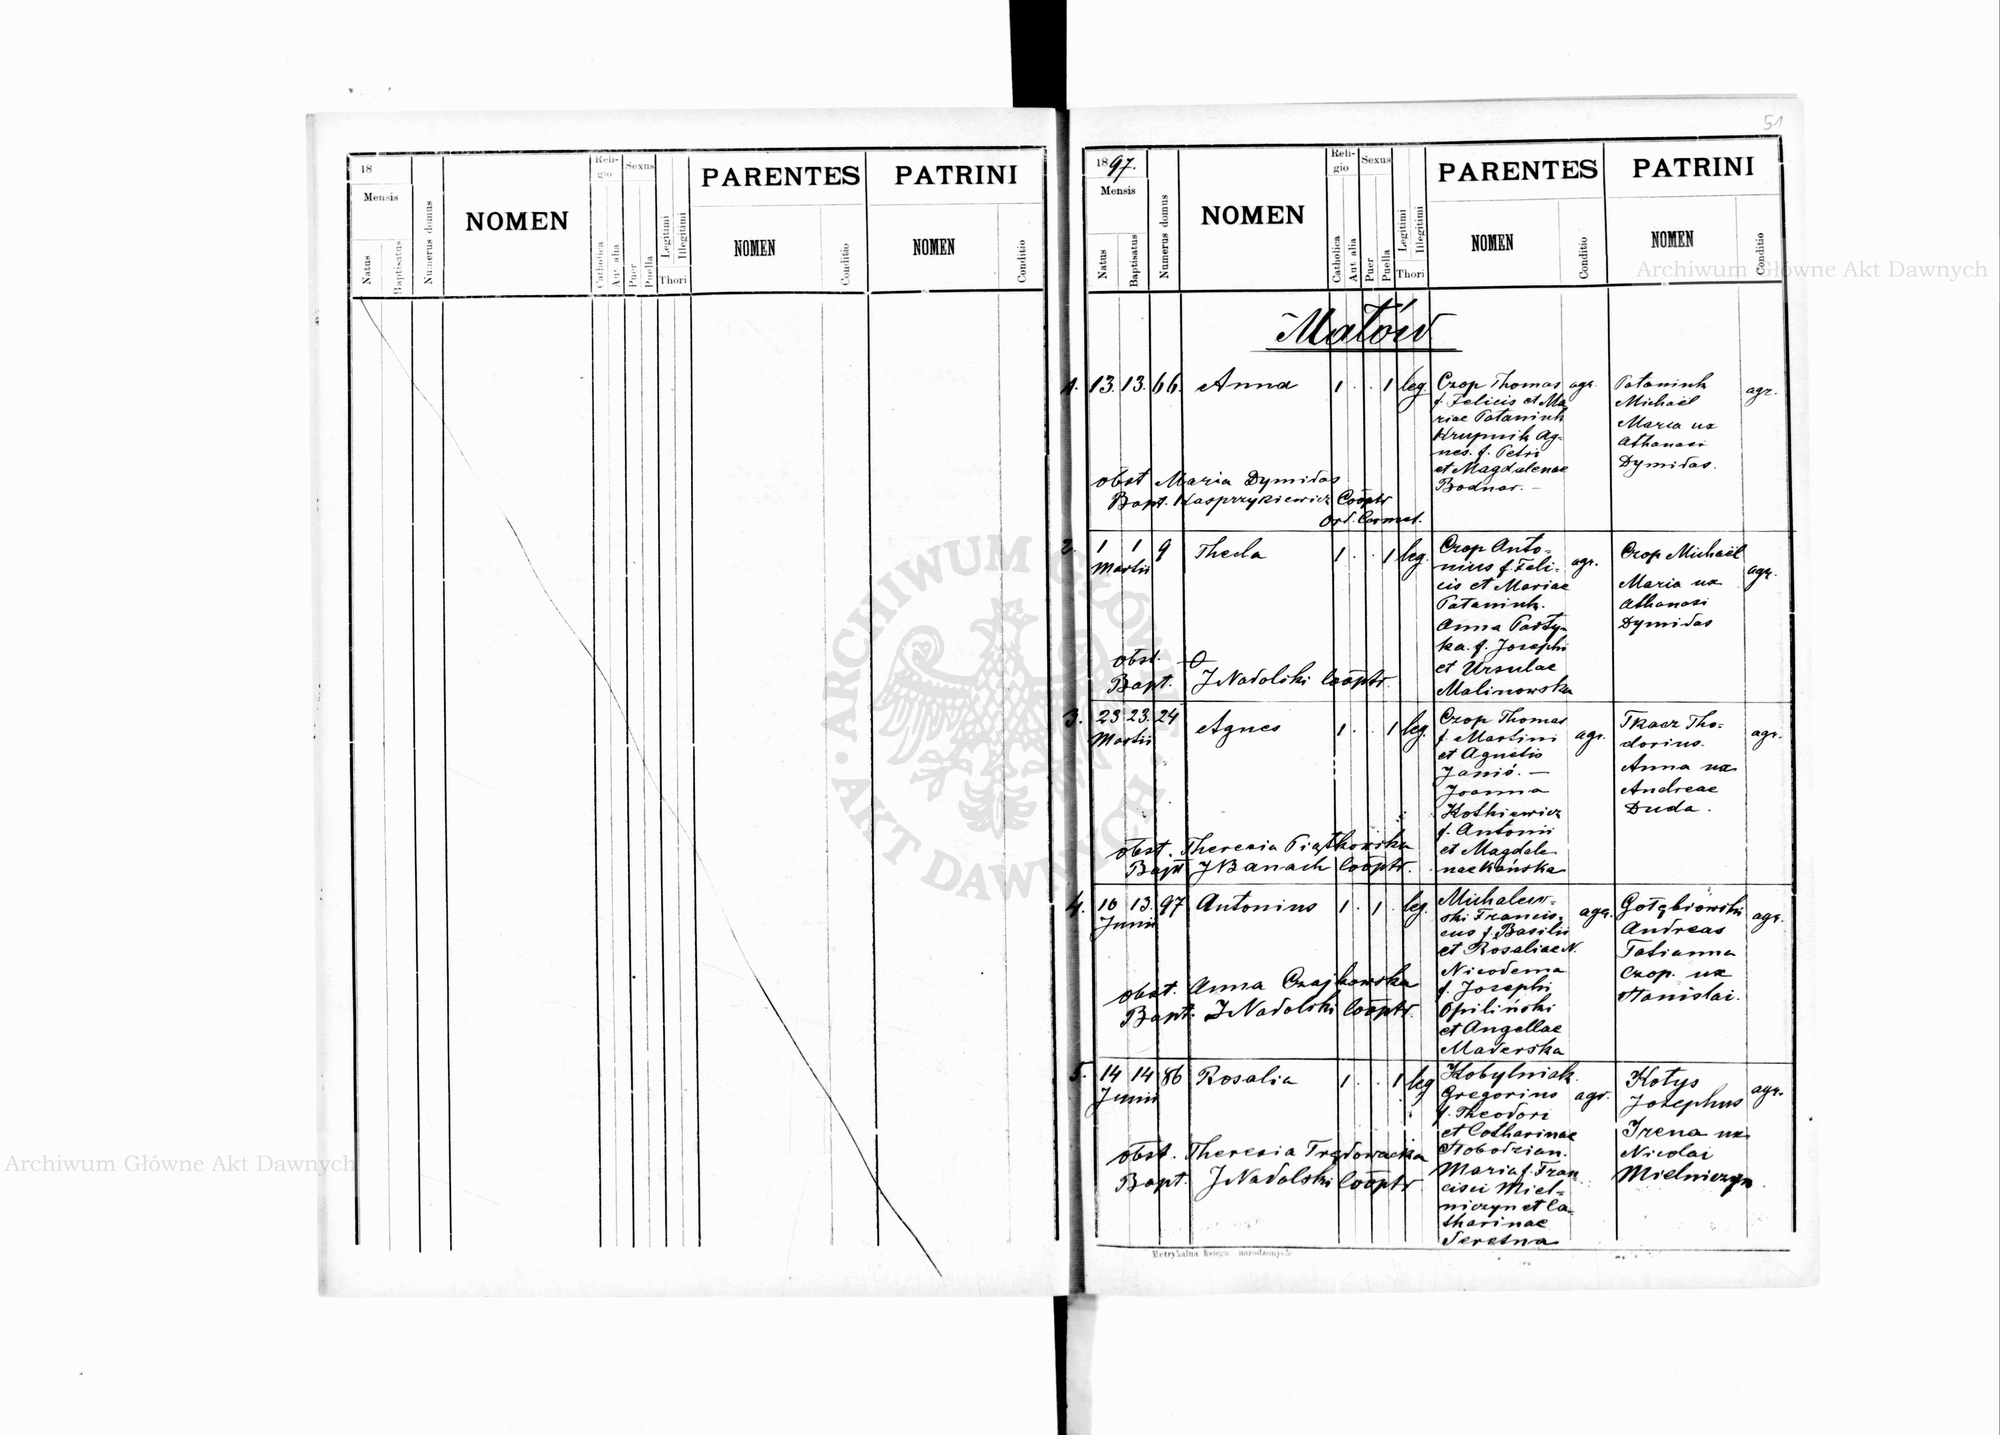 51
18
Mensis
Natus
Baptisatus
Numerus domus
NOMEN
Reli-
gio
Catholica
Aut alia
Sexus
Puer
Puella
Legitimi
Illegitimi
Thori
PARENTES
NOMEN
Conditio
PATRINI
NOMEN
Conditio
1897.
Mensis
Natus
Baptisatus
Numerus domus
NOMEN
Reli-
gio
Catholica
Aut alia
Sexus
Puer
Puella
Legitimi
Illegitimi
Thori
PARENTES
NOMEN
Conditio
PATRINI
NOMEN
Conditio
Matów
1. 13. 13. 66. Anna 1 . . 1 leg.
Czop Thomas agr.
f. Felicis et Ma
riae Pataniuk
Krupnik Ag-
nes. f. Petri
et Magdalenae
Bodnar. —
Pataniuk agr.
Michaël
Maria ux
Athanasi
Dymidas.
obst Maria Dymidas
Bapt. Kasprzykiewicz Cooptr
Ord. Carmel.
2. 1 1 9 Thecla 1 . . 1 leg.
Martii
Czop Anto-
nius f. Feli- agr.
cis et Mariae
Pataniuk.
Anna Party-
ka. f. Josephi
et Ursulae
Malinowska
Czop Michaël
Maria ux agr.
Athanasi
Dymidas
obst. O
Bapt. J Nadolski Cooptr.
3. 23 23. 24 Agnes 1 . . 1 leg.
Martii
Czop Thomas
f. Martini agr.
et Agnetis
Janió. —
Joanna
Kotkiewicz
f. Antonii
et Magdale-
nae Kańska
Tkacz Tho-
dorius. agr.
Anna ux
Andreae
Duda.
obst. Theresia Piątkowska
Bapt J Banach Cooptr.
4. 10 13. 97 Antonius 1 . 1 . leg.
Junii
Michalew-
ski Francis- agr.
cus f. Basilii
et Rosaliae N.
Nicodema
f. Josephi
Opiliński
et Angellae
Maderska
Gołębiowski agr.
Andreas
Tatianna
Czop. ux
Stanislai.
obst. Anna Czajkowska
Bapt. J Nadolski Cooptr.
5. 14 14 86 Rosalia 1 . . 1 leg
Junii
Kobylniak.
Gregorius agr.
f. Theodori
et Catharinae
Stobodzian.
Maria f. Fran
cisci Miel-
niczyn et Ca-
tharinae
Seretna
Kotys agr.
Josephus
Irena ux
Nicolai
Mielniczyn
obst. Theresia Trędowacka
Bapt. J Nadolski Cooptr
Metrykalna księga narodzonych
ARCHIWUM GŁÓWNE · AKT DAWNYCH ·
Archiwum Główne Akt Dawnych
Archiwum Główne Akt Dawnych